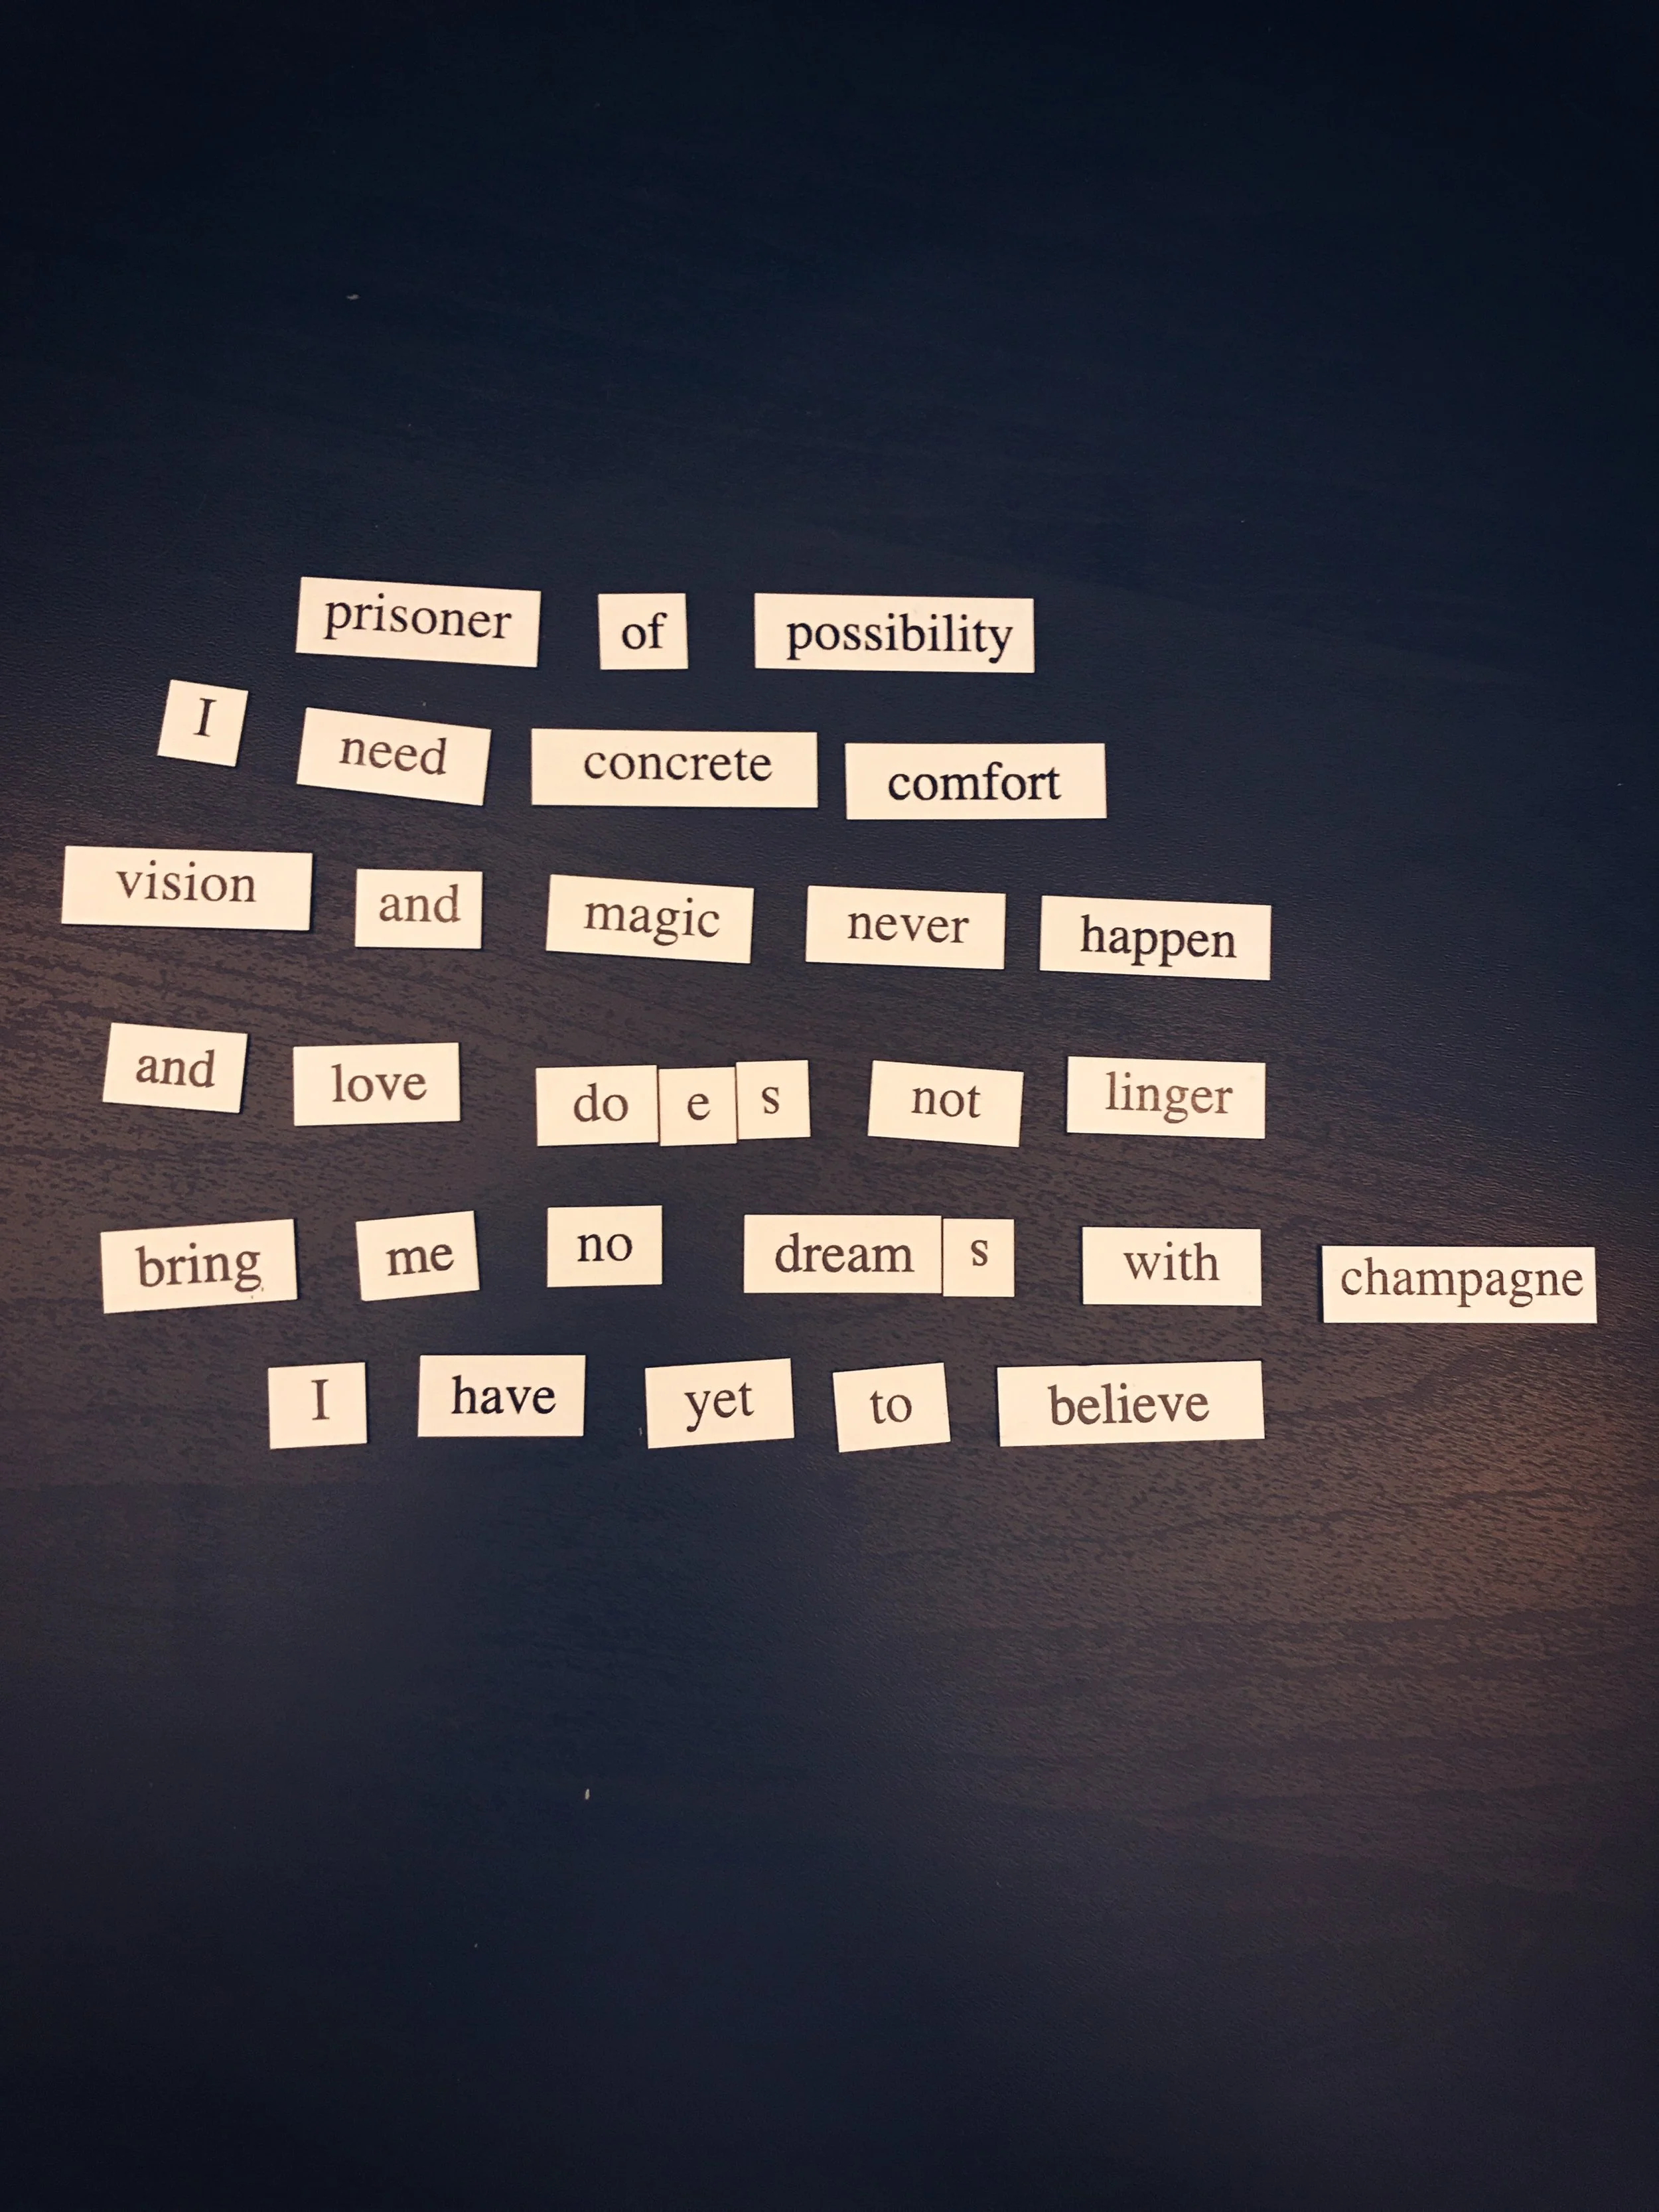 prisoner of possibility
I need concrete comfort
vision and magic never happen
and love does not linger
bring me no dreams with champagne
I have yet to believe